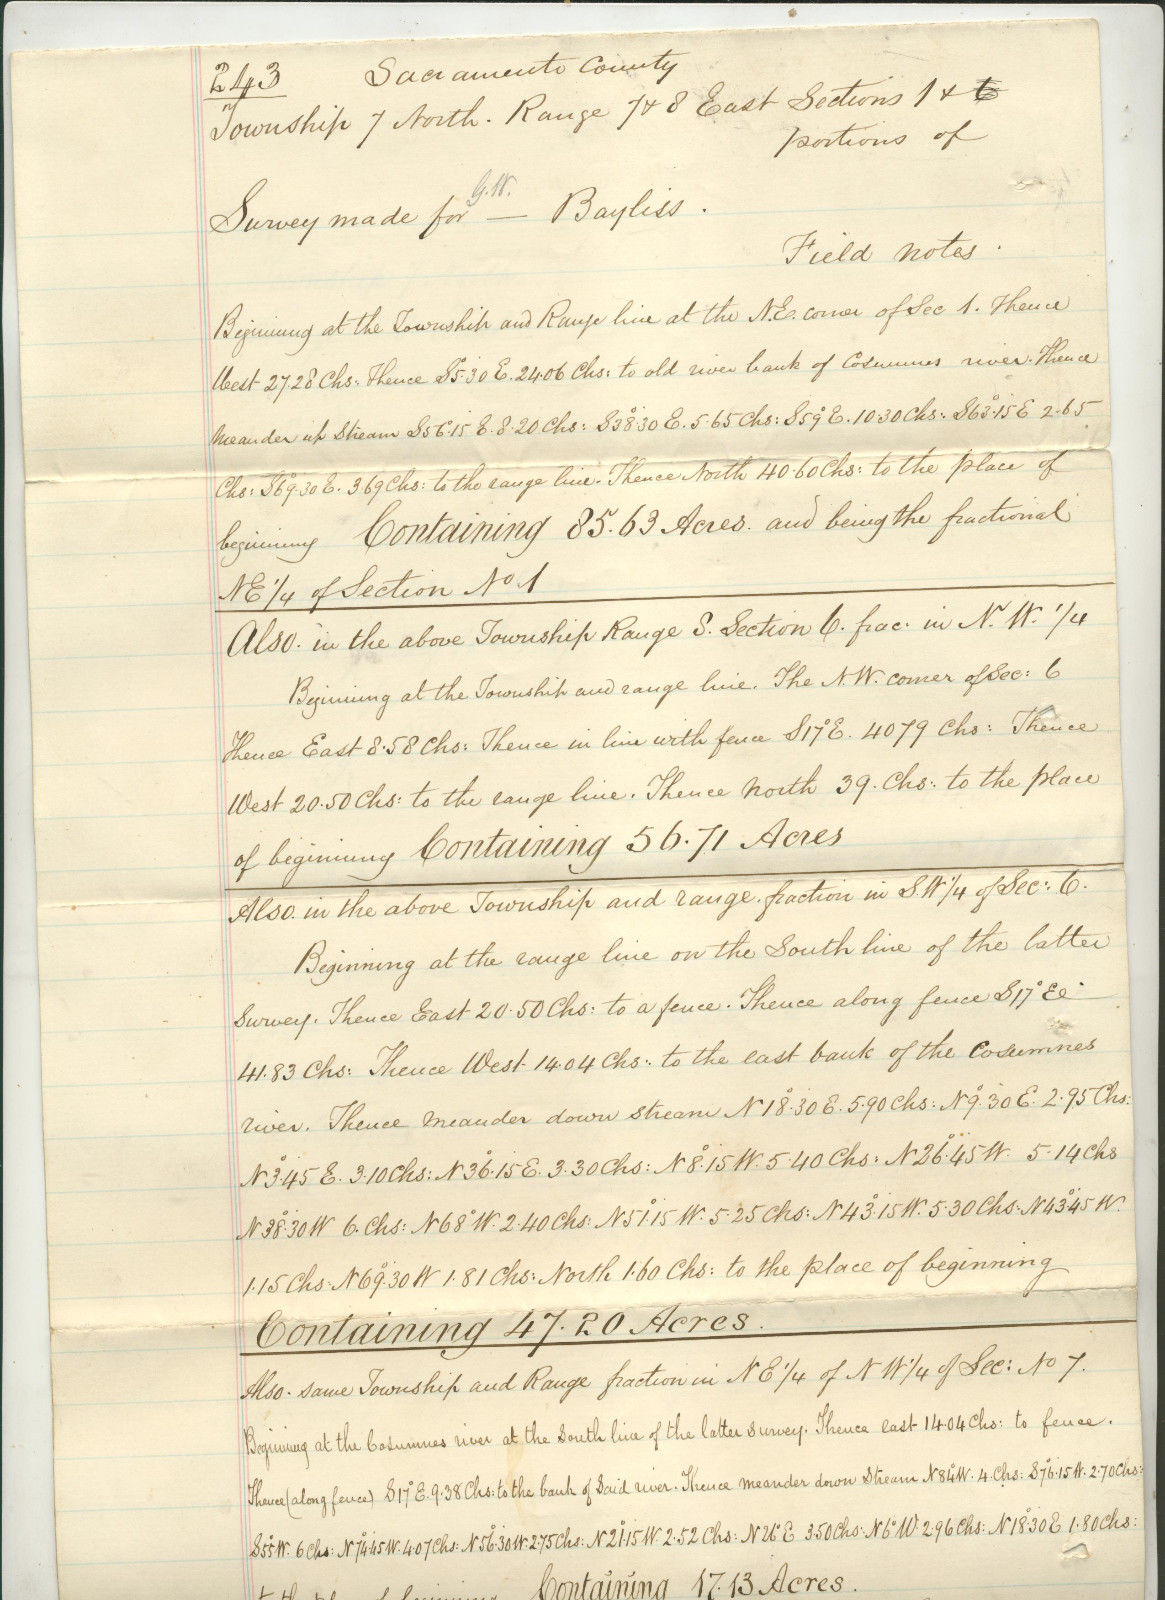 243 Sacramento County
Township 7 North. Range 7 & 8 East Sections 1 & 6
portions of
G.W.
Survey made for — Bayliss.
Field notes.
Beginning at the Township and Range line at the N.E. corner of Sec 1. Thence
West 27.28 Chs: Thence S5°30 E. 24.06 Chs: to old river bank of Cosumnes river. Thence
meander up Stream S56°15 E. 8.20 Chs: S38°30 E. 5.65 Chs: S59° E. 10.30 Chs: S63°15 E 2.65
Chs: S69°30 E. 3.69 Chs: to the range line. Thence North 40.60 Chs: to the place of
beginning Containing 85.63 Acres. and being the fractional
NE 1/4 of Section No 1
Also. in the above Township Range 8. Section 6. frac. in N.W. 1/4
Beginning at the Township and range line. The N.W. corner of Sec: 6
Thence East 8.58 Chs: Thence in line with fence S17°E. 40.79 Chs: Thence
West 20.50 Chs: to the range line. Thence North 39. Chs: to the place
of beginning Containing 56.71 Acres
Also. in the above Township and range. fraction in S.W 1/4 of Sec: 6.
Beginning at the range line on the South line of the latter
Survey. Thence East 20.50 Chs: to a fence. Thence along fence S17°E
41.83 Chs: Thence West 14.04 Chs: to the east bank of the Cosumnes
river. Thence meander down stream N18°30 E. 5.90 Chs: N9°30 E. 2.95 Chs:
N3°45 E. 3.10 Chs: N36°15 E. 3.30 Chs: N8°15 W. 5.40 Chs: N26°45 W. 5.14 Chs
N38°30 W 6. Chs: N68° W. 2.40 Chs: N51°15 W. 5.25 Chs: N43°15 W. 5.30 Chs: N43°45 W.
1.15 Chs: N69°30 W 1.81 Chs: North 1.60 Chs: to the place of beginning
Containing 47.20 Acres.
Also. same Township and Range fraction in N E 1/4 of N W 1/4 of Sec: No 7.
Beginning at the Cosumnes river at the South line of the latter survey. Thence east 14.04 Chs: to fence.
Thence (along fence) S17° E. 9.38 Chs: to the bank of Said river. Thence meander down Stream N84°W. 4. Chs: S76°15 W. 2.70 Chs:
S55° W. 6 Chs: N74°45 W. 4.07 Chs: N56°30 W. 2.75 Chs: N21°15 W. 2.52 Chs: N26° E 3.50 Chs: N6° W 2.96 Chs: N18°30 E 1.80 Chs:
Containing 17.13 Acres.